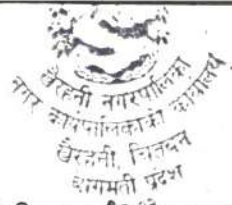 खैरहनी नगरपालिका
नगर कार्यपालिकाको कार्यालय
खैरहनी, चितवन
बागमती प्रदेश